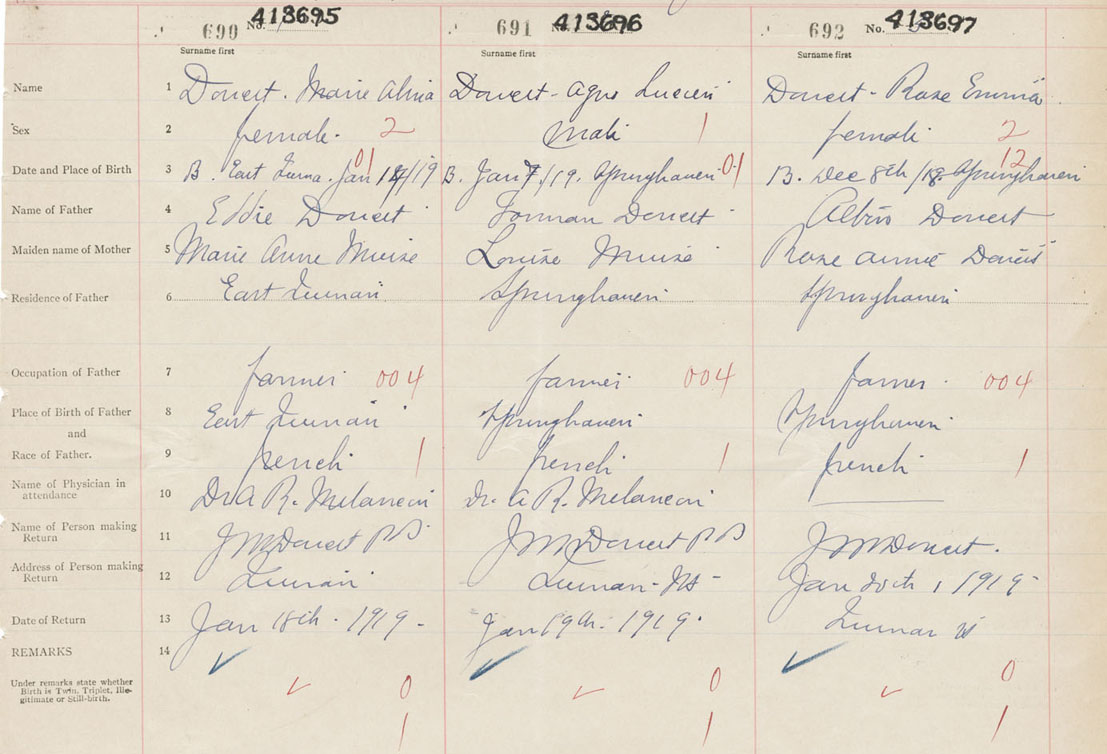 690 No. 413695 691 No. 413696 692 No. 413697
Surname first Surname first Surname first
Name 1 Doucet. Marie Alma Doucet - Lucien Doucet - Rose Emma
Sex 2 female. 2 Male 1 female 2
Date and Place of Birth 3 B. East Jan /19 01 B. Jan 7/19. Springhaven 01 B. Dec 8th/18 Springhaven 12
Name of Father 4 Eddie Doucet Forman Doucet Doucet
Maiden name of Mother 5 Marie Anne Muise Louise Muise Rose Annie Doucet
Residence of Father 6 East Springhaven Springhaven
Occupation of Father 7 farmer 004 farmer 004 farmer. 004
Place of Birth of Father 8 East Springhaven Springhaven
and
Race of Father. 9 french 1 french 1 french 1
Name of Physician in
attendance 10 Dr A R. Melancon Dr. A R. Melancon
Name of Person making
Return 11 J M Doucet J M Doucet J M Doucet.
Address of Person making
Return 12 Jan 20th, 1919
Date of Return 13 Jan 18th. 1919 - Jan 19th. 1919.
REMARKS 14
Under remarks state whether
Birth is Twin, Triplet, Ille-
gitimate or Still-birth.
0 0 0
1 1 1